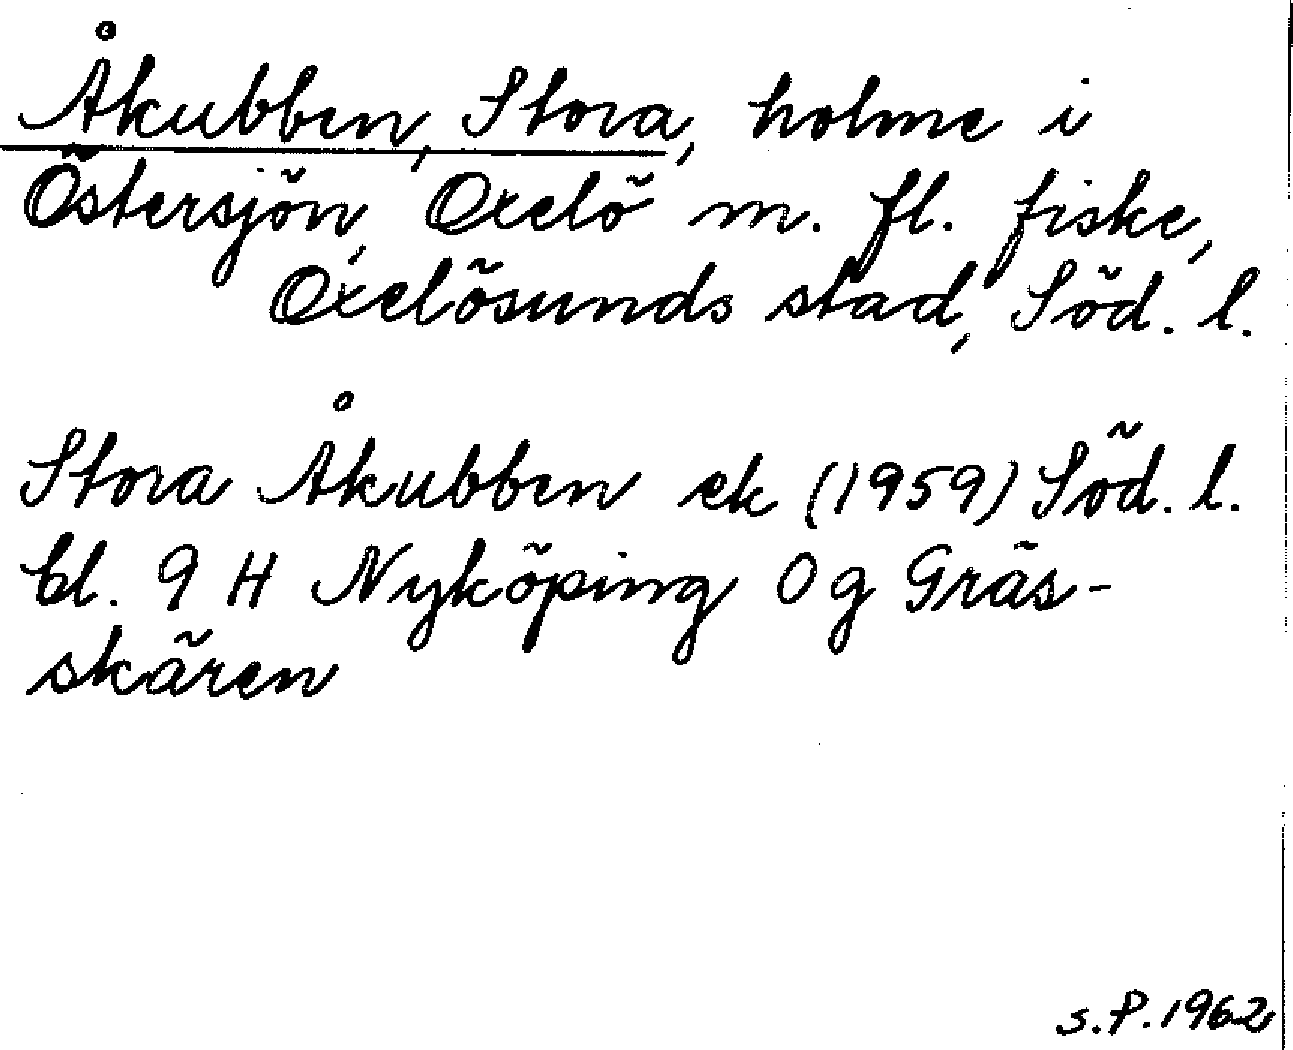 Åkubben, Stora, holme i
Östersjön, Oxelö m. fl. fiske,
Oxelösunds stad, Söd. l.
Stora Åkubben ek (1959) Söd. l.
bl. 9 H Nyköping 0 g Gräs-
skären
S.P. 1962